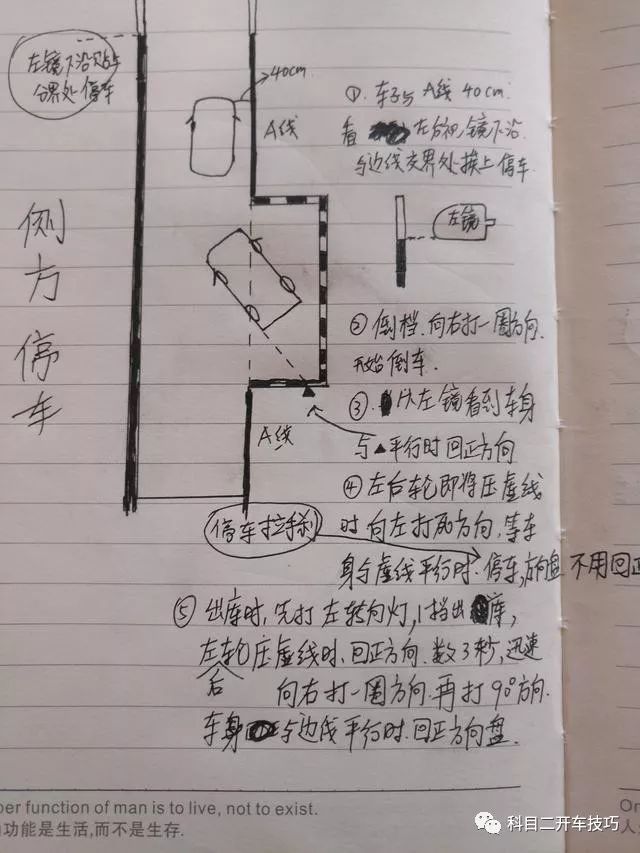 左镜下沿贴车
分界处停车
侧方停车
40cm
A线
① 车子与A线40cm.
看 左后视镜下沿
与边线交界处挨上停车
左镜
② 倒档.向右打一圈方向.
开始倒车.
③ 从左镜看到车身
与▲平行时回正方向
A线
④ 左后轮即将压虚线
时向左打死方向,等车
身与虚线平行时.停车,方向盘不用回正
停车拉手刹
⑤ 出库时,先打左转向灯,1挡出库,
左后轮压虚线时.回正方向.数3秒,迅速
向右打一圈方向.再打90°方向.
车身与边线平行时.回正方向盘.
per function of man is to live, not to exist.
功能是生活,而不是生存.
On
人
科目二开车技巧